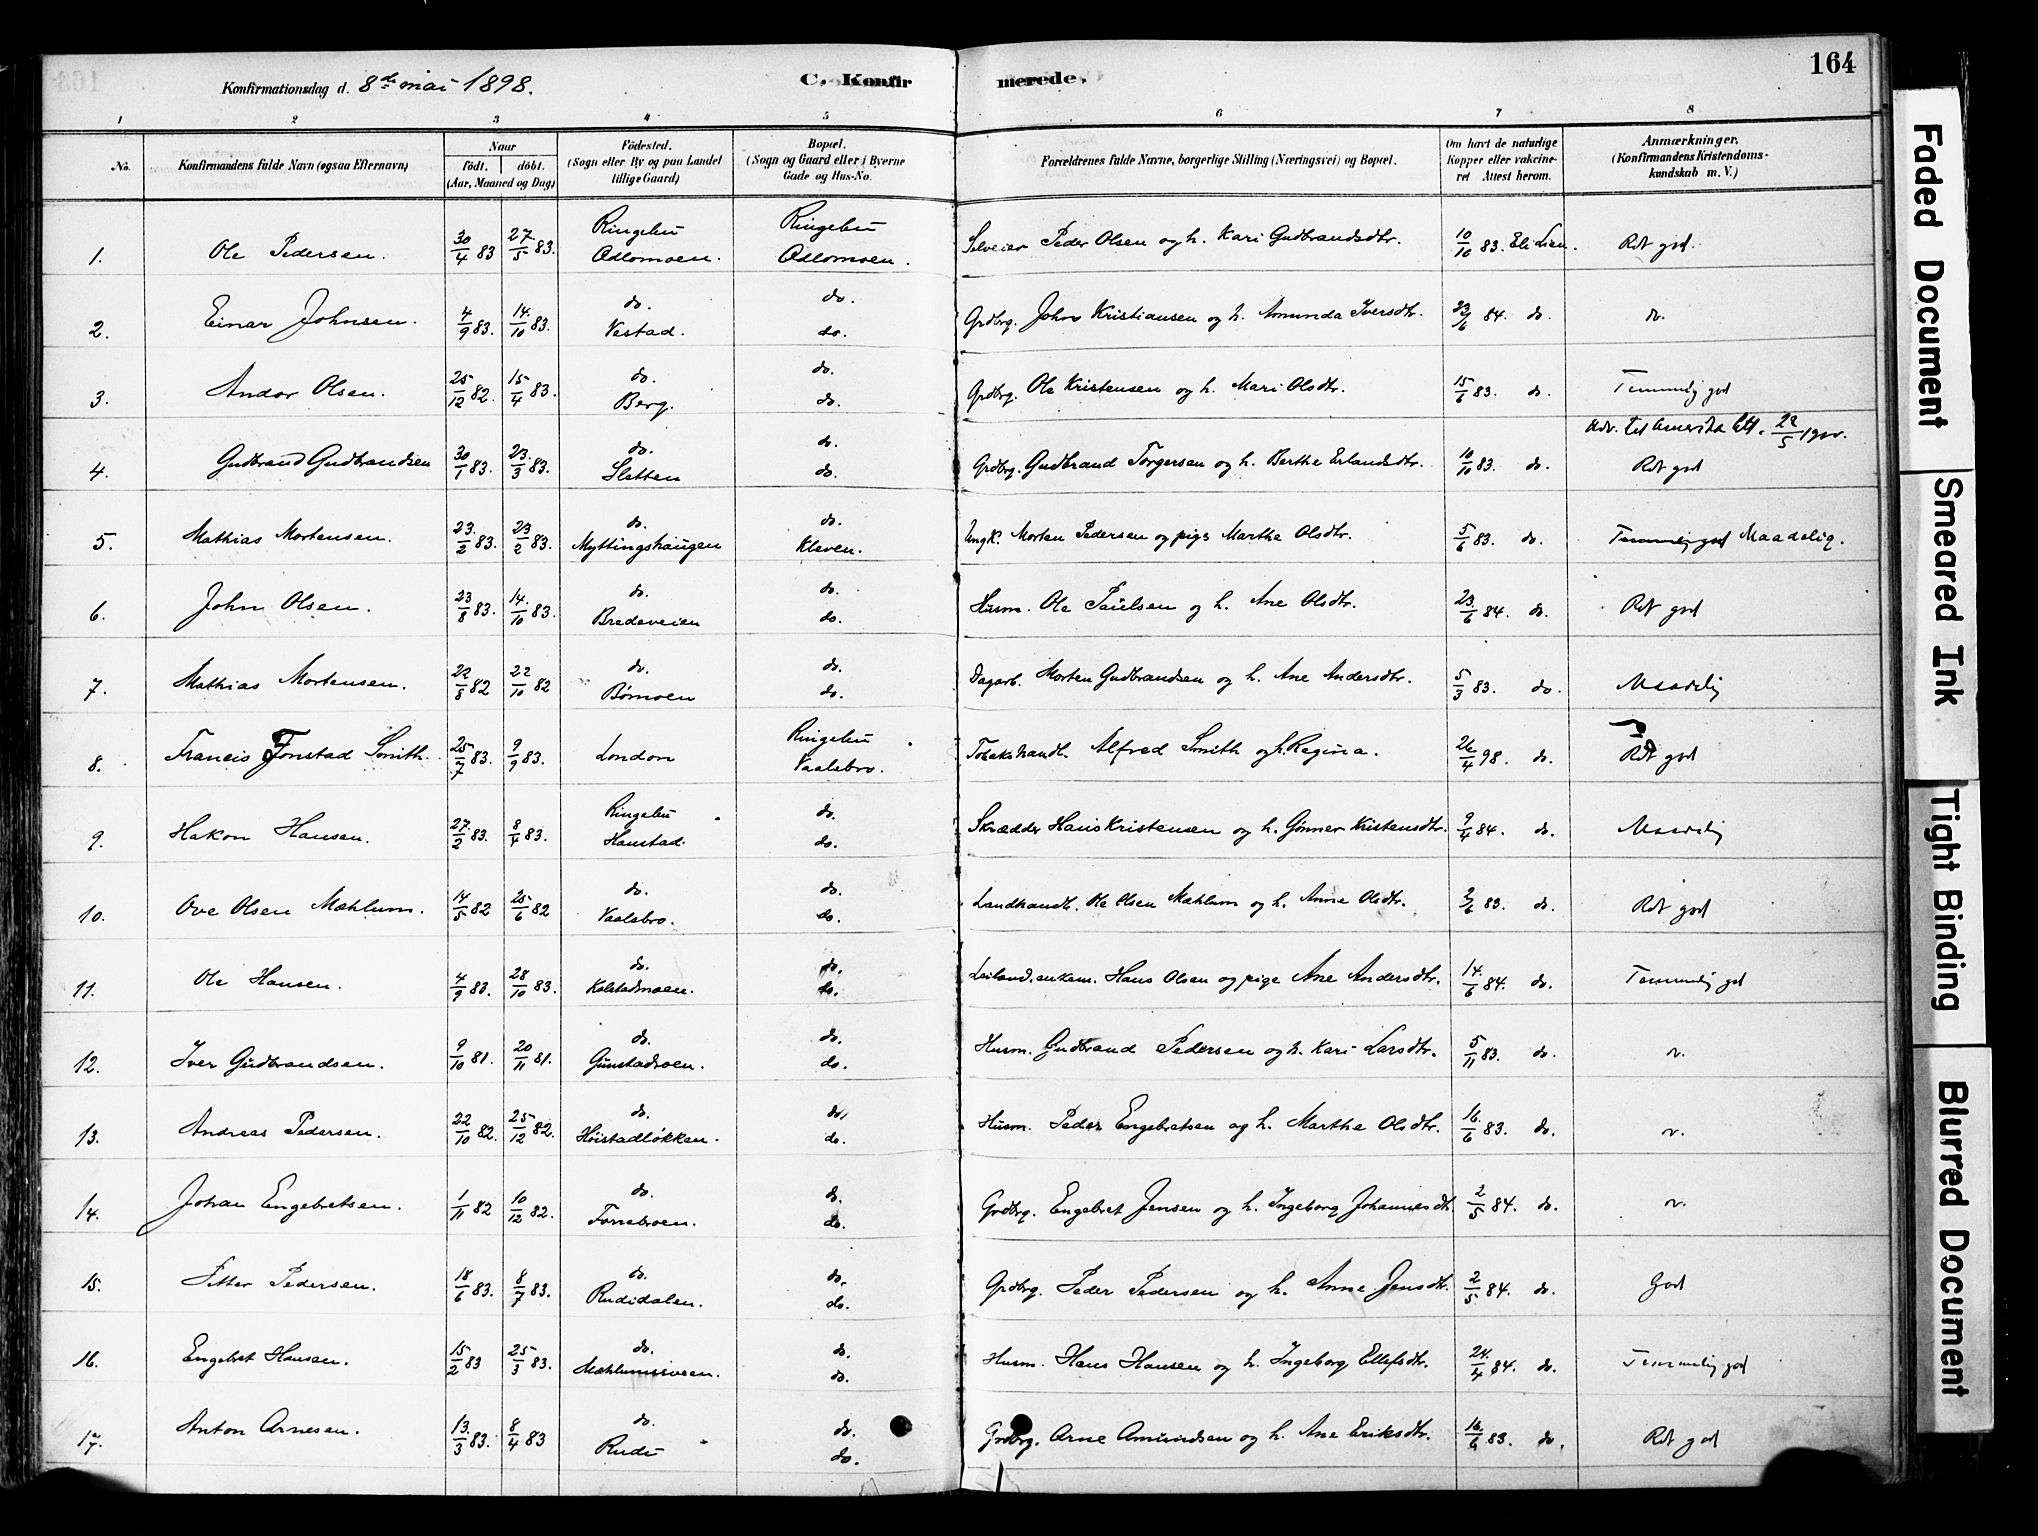 164
Konfirmationsdag d. 8de mai 1898.
C. Konfirmerede.
1 2 3 4 5 6 7 8
No. Konfirmandens fulde Navn (ogsaa Efternavn) Naar födt. döbt. (Aar, Maaned og Dag) Födested. (Sogn eller By og paa Landet tillige Gaard) Bopæl. (Sogn og Gaard eller i Byerne Gade og Hus-No. Forældrenes fulde Navne, borgerlige Stilling (Næringsvei) og Bopæl. Om havt de naturlige Kopper eller vakcineret Attest herom. Anmærkninger. (Konfirmandens Kristendomskundskab m. V.)
1. Ole Pedersen. 30/4 83 27/5 83. Ringebu Odlomoen. Ringebu Odlomoen. Selveier Peder Olsen og h. Kari Gudbrandsdtr. 10/10 83. Eli Lien. Rdt god.
2. Einar Johnsen. 4/9 83. 14/10 83. do. Vestad. do. do. Grdbrg. John Kristiansen og h. Amunda Iversdtr. 23/6 84. do. do.
3. Andor Olsen. 25/12 82. 15/4 83. do. Berg. do. do. Grdbrg. Ole Kristensen og h. Mari Olsdtr. 15/6 83. do. Temmelig god
4. Gudbrand Gudbrandsen 30/1 83. 23/3 83. do. Sletten do. do. Grdbrg. Gudbrand Torgersen og h. Berthe Erlandsdtr. 10/10 83. do. Udv. til Amerika Att. 22/5 Rdt god
5. Mathias Mortensen. 23/2 83. 23/2 83. do. Myttingshaugen do. Kleven. Ungk. Morten Pedersen og pige Marthe Olsdtr. 5/6 83. do. Temmelig god Maadelig.
6. John Olsen. 23/8 83. 14/10 83. do. Bredeveien do. do. Husm. Ole Paulsen og h. Ane Olsdtr. 23/6 84. do. Rdt god
7. Mathias Mortensen. 22/8 82 22/10 82 do. Börmoen do. do. Dagarb. Morten Gudbrandsen og h. Ane Andersdtr. 5/3 83. do. Maadelig
8. Francis Fonstad Smith. 25/7 83. 9/9 83. London Ringebu Vaalebro. Tobakshandl. Alfred Smith og h. Regina. 26/4 98. do. Rdt god
9. Hakon Hansen. 27/2 83. 8/4 83. Ringebu Hanstad. do. do. Skrædder Hans Kristensen og h. Gönner Kristensdtr. 9/4 84. do. Maadelig
10. Ove Olsen Mæhlum. 14/5 82 25/6 82 do. Vaalebro. do. do. Landhandl. Ole Olsen Mæhlum og h. Anne Olsdtr. 2/6 83. do. Rdt god
11. Ole Hansen. 4/9 83. 28/10 83. do. Kolstadmoen. do. do. Leiland. enkem. Hans Olsen og pige Ane Andersdtr. 14/6 84. do. Temmelig god
12. Iver Gudbrandsen. 9/10 81. 20/11 81. do. Gunstadmoen. do. do. Husm. Gudbrand Pedersen og h. Kari Larsdtr. 5/11 83. do. do.
13. Andreas Pedersen. 22/10 82. 25/12 82. do. Höistadlökken. do. do. Husm. Peder Engebretsen og h. Marthe Olsdtr. 16/6 83. do. do.
14. Johan Engebretsen. 1/11 82 10/12 82. do. do. do. Grdbrg. Engebret Jensen og h. Ingeborg Johannesdtr. 2/5 84. do. do.
15. Petter Pedersen. 18/6 83. 8/7 83. do. Rudidalen. do. do. Grdbrg. Peder Pedersen og h. Anne Jensdtr. 2/5 84. do. God
16. Engebret Hansen. 15/2 83 25/3 83. do. Mæhlumsveen. do. do. Husm. Hans Hansen og h. Ingeborg Ellefsdtr. 24/4 84. do. Temmelig god
17. Anton Arnesen. 13/3 83. 8/4 83 do. Rudi do. do. Grdbrg. Arne Amundsen og h. Ane Eriksdtr. 16/6 83. do. Rdt god
Faded Document
Smeared Ink
Tight Binding
Blurred Document